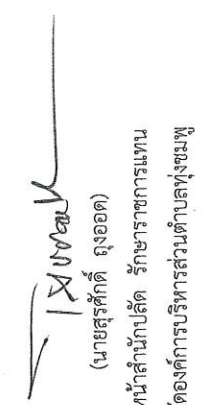 (นายสุรศักดิ์ ถุงออด)
หน้าสำนักปลัด รักษาราชการแทน
ดองค์การบริหารส่วนตำบลทุ่งชมพู